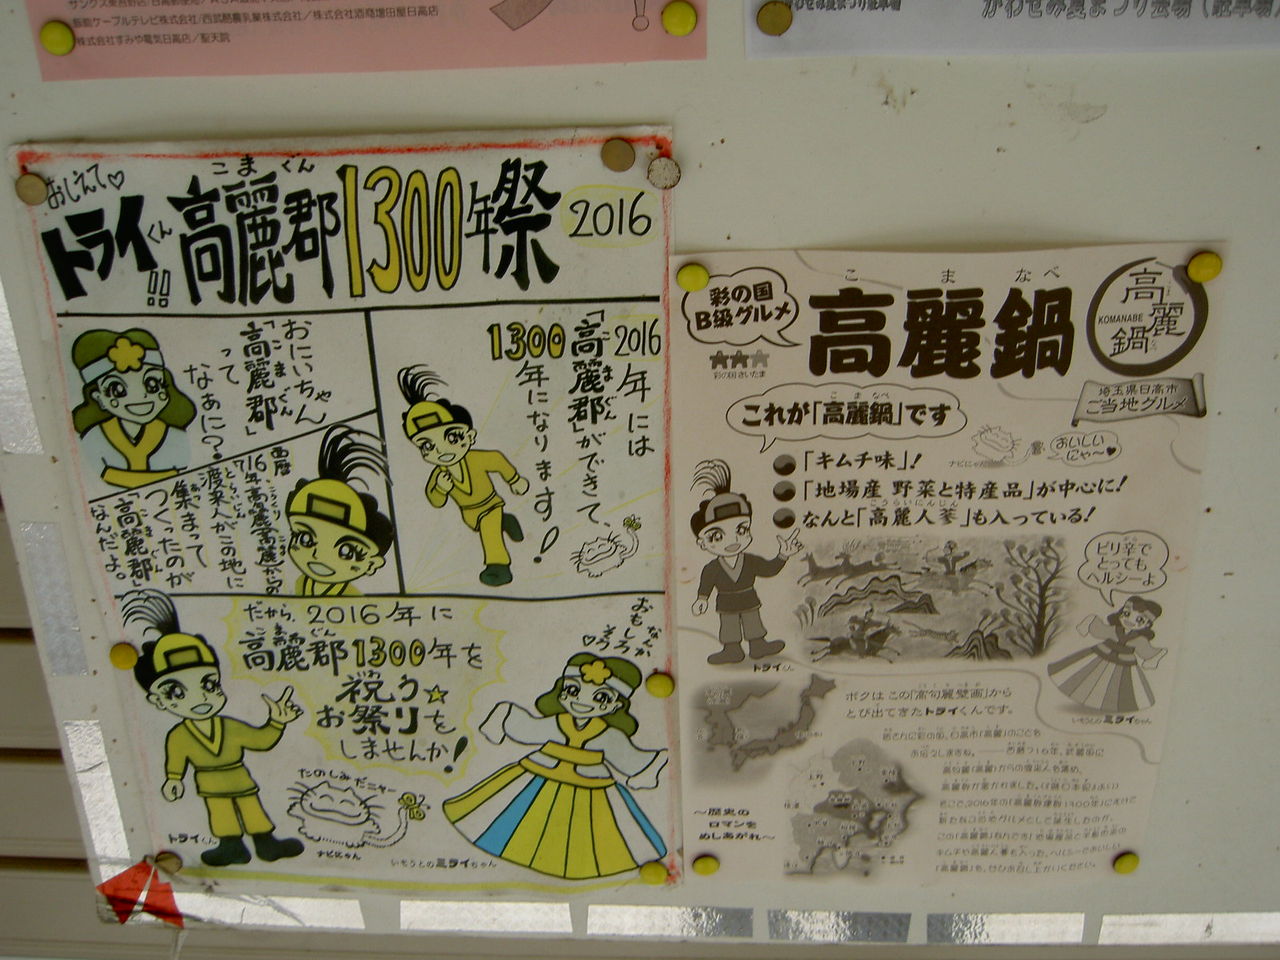 飯能ケーブルテレビ株式会社/西武酪農乳業株式会社/株式会社酒商増田屋日高店
株式会社すみや電気日高店/聖天院
かわせみ夏まつり会場(駐車場)
おしえて♡
トライくん!!
こまぐん
高麗郡1300年祭
2016
おにいちゃん
「高麗郡」
こまぐん
って
なあに?
西暦
716年高句麗(高麗)からの
渡来人がこの地に
とらいじん
集まって
あつ
つくったのが
「高麗郡」
こまぐん
なんだよ。
2016年には
「高麗郡」ができて、
こまぐん
1300
年になります!
だから、2016年に
こまぐん
高麗郡1300年を
いわ
祝う☆
お祭りを
しませんか!
なんか
おもしろ
そう♡
たのしみだニャー
トライくん
ナビにゃん
いもうとのミライちゃん
彩の国
B級グルメ
彩の国さいたま
こまなべ
高麗鍋
高麗鍋
KOMANABE
埼玉県日高市
ご当地グルメ
こまなべ
これが「高麗鍋」です
「キムチ味」!
「地場産 野菜と特産品」が中心に!
こうらいにんじん
なんと「高麗人蔘」も入っている!
ナビにゃん
おいしい
にゃ〜♥
ピリ辛で
とっても
ヘルシーよ
トライくん
いもうとのミライちゃん
ボクはこの「高句麗壁画」から
とび出てきたトライくんです。
〜歴史の
ロマンを
めしあがれ〜